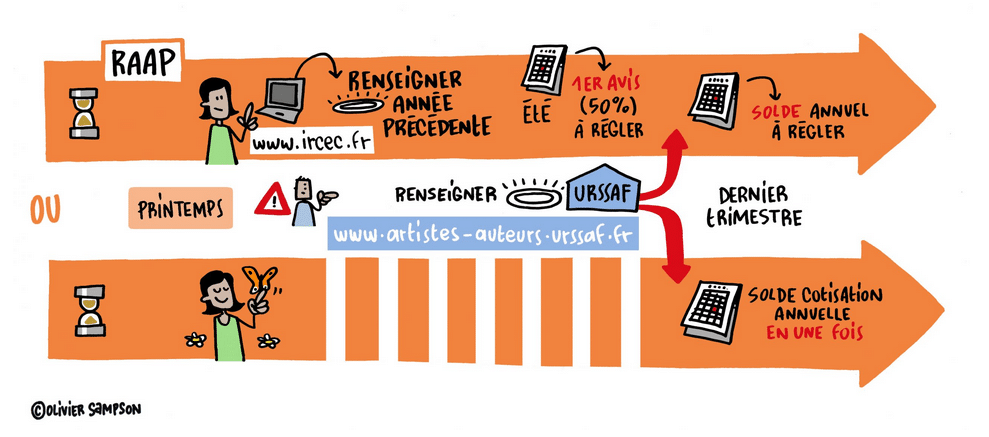 RAAP
RENSEIGNER
ANNÉE
PRÉCÉDENTE
www.ircec.fr
ÉTÉ
1ER AVIS
(50%)
À RÉGLER
SOLDE ANNUEL
À RÉGLER
OU
PRINTEMPS
!
RENSEIGNER
URSSAF
www.artistes-auteurs.urssaf.fr
DERNIER
TRIMESTRE
SOLDE COTISATION
ANNUELLE
EN UNE FOIS
©OLIVIER SAMPSON